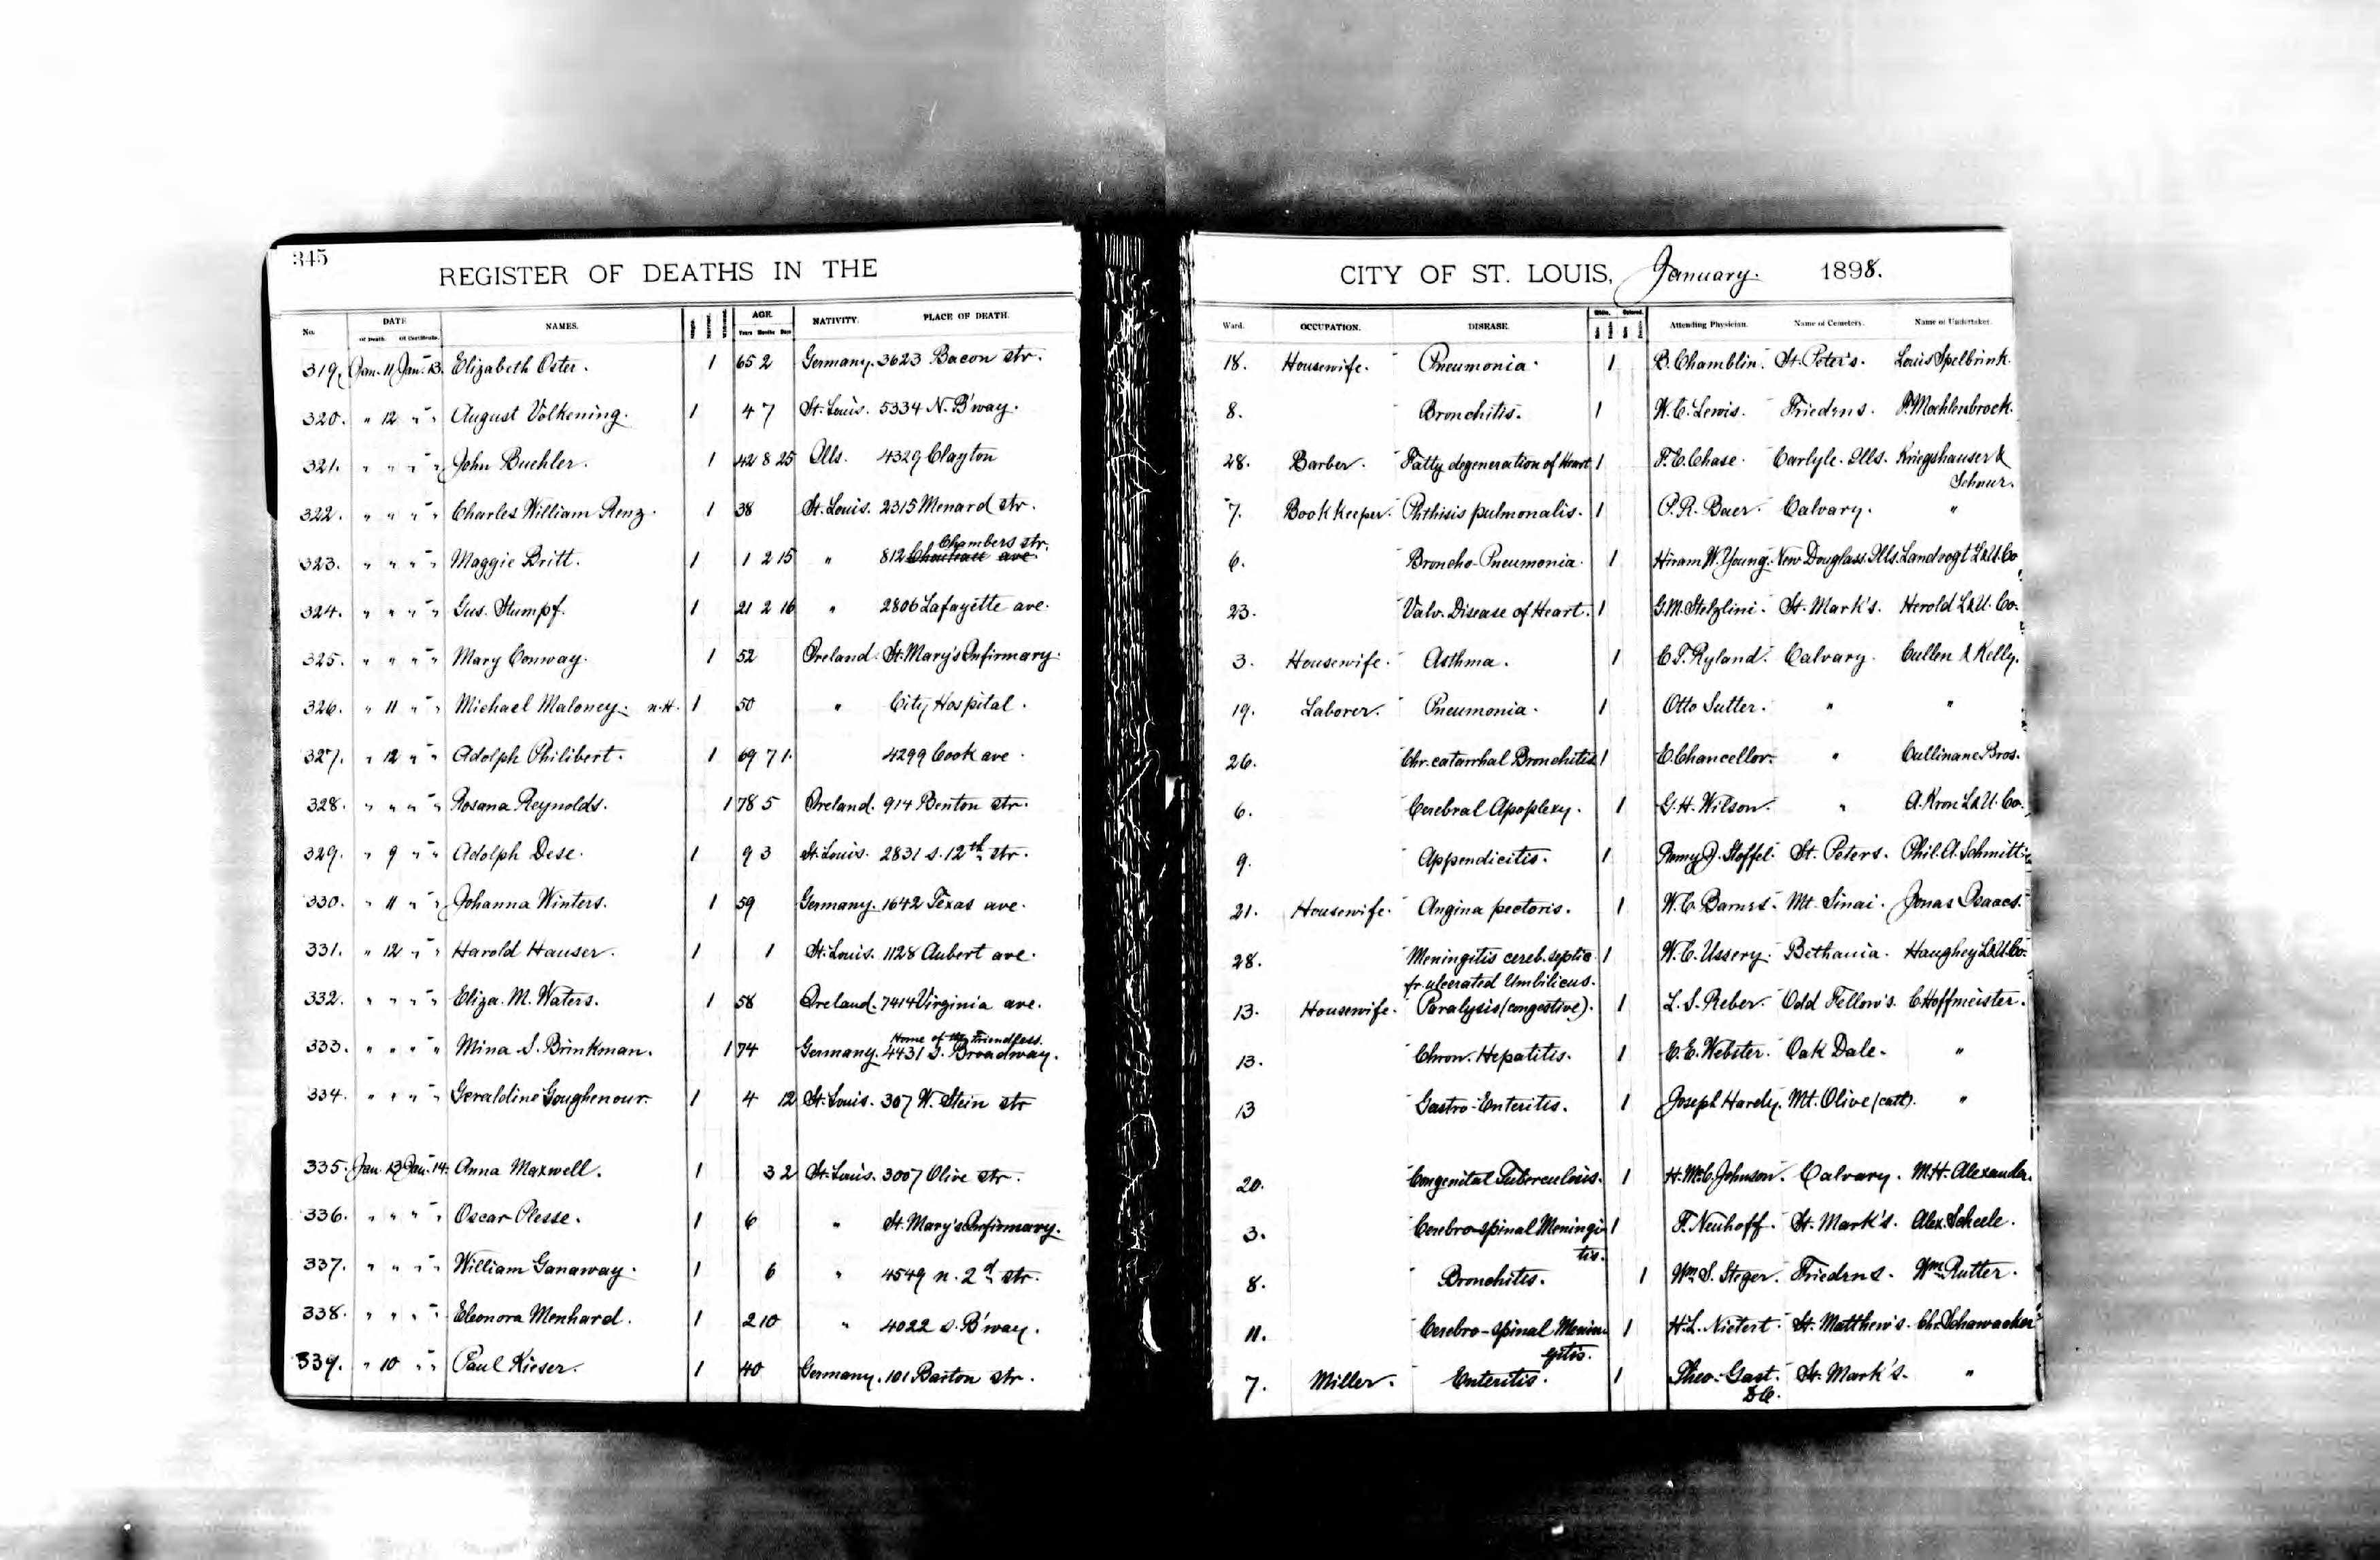 345
REGISTER OF DEATHS IN THE
CITY OF ST. LOUIS, January. 1898.
No. DATE NAMES. AGE. NATIVITY. PLACE OF DEATH. Ward. OCCUPATION. DISEASE. White. Colored. Attending Physician. Name of Cemetery. Name of Undertaker.
Of Death. Of Certificate. Years Months Days
319. Jan. 11 Jan. 13. Elizabeth Oster. 1 65 2 Germany. 3623 Bacon str. 18. Housewife. Pneumonia. 1 B. Chamblin. St. Peter's. Louis Spelbrink.
320. " 12 " " August Volkening. 1 4 7 St. Louis. 5334 N. B'way. 8. Bronchitis. 1 W. C. Lewis. Friedens. P. Moehlenbrock.
321. " " " " John Buehler. 1 42 8 25 Ills. 4329 Clayton 28. Barber. Fatty degeneration of Heart 1 F. C. Chase. Carlyle. Ills. Kriegshauser &
Schnur.
322. " " " " Charles William Renz. 1 38 St. Louis. 2315 Menard str. 7. Book keeper. Phthisis pulmonalis. 1 P. R. Baer. Calvary. "
Chambers str.
323. " " " " Maggie Britt. 1 1 2 15 " 812 Chouteau ave. 6. Broncho-Pneumonia. 1 Hiram W. Young. New Douglass. Ills. Landvogt L & U. Co
324. " " " " Gus. Stumpf. 1 21 2 16 " 2806 Lafayette ave. 23. Valv. Disease of Heart. 1 G. M. Stelzlini. St. Mark's. Herold L & U. Co.
325. " " " " Mary Conway. 1 52 Ireland. St. Mary's Infirmary. 3. Housewife. Asthma. 1 C. F. Ryland. Calvary. Cullen & Kelly.
326. " 11 " " Michael Maloney. n. H. 1 50 " City Hospital. 19. Laborer. Pneumonia. 1 Otto Sutter. " "
327. " 12 " " Adolph Philibert. 1 69 7 1. 4299 Cook ave. 26. Chr. catarrhal Bronchitis 1 E. Chancellor. " Cullinane Bros.
328. " " " " Rosana Reynolds. 1 78 5 Ireland. 914 Benton str. 6. Cerebral Apoplexy. 1 G. H. Wilson. " A. Kron L & U. Co.
329. " 9 " " Adolph Dese. 1 9 3 St. Louis. 2831 S. 12th str. 9. Appendicitis. 1 J. Stoffel. St. Peters. Phil. A. Schmitt.
330. " 11 " " Johanna Winters. 1 59 Germany. 1642 Texas ave. 21. Housewife. Angina pectoris. 1 W. C. Barnes. Mt. Sinai. Jonas Isaacs.
331. " 12 " " Harold Hauser. 1 1 St. Louis. 1128 Aubert ave. 28. Meningitis cereb. septic 1 W. C. Ussery. Bethania. Haughey L & U. Co.
fr. ulcerated Umbilicus.
332. " " " " Eliza. M. Waters. 1 58 Ireland. 7414 Virginia ave. 13. Housewife. Paralysis (congestive). 1 L. S. Reber. Odd Fellow's. C. Hoffmeister.
Home of the Friendless.
333. " " " " Mina S. Brinkman. 1 74 Germany. 4431 S. Broadway. 13. Chron. Hepatitis. 1 E. E. Webster. Oak Dale. "
334. " " " " Geraldine Goughenour. 1 4 12 St. Louis. 307 W. Stein str 13 Gastro-Enteritis. 1 Joseph Hardy. Mt. Olive (cath). "
335. Jan. 13 Jan. 14. Anna Maxwell. 1 3 2 St. Louis. 3007 Olive str. 20. Congenital Tuberculosis. 1 H. McC. Johnson. Calvary. M. H. Alexander.
336. " " " " Oscar Plesse. 1 6 " St. Mary's Infirmary. 3. Cerebro-spinal Meningi- 1 F. Neuhoff. St. Mark's. Alex. Scheele.
tis.
337. " " " " William Ganaway. 1 6 " 4549 n. 2d str. 8. Bronchitis. 1 Wm. S. Steger. Friedens. Wm. Rutter.
338. " " " " Eleonora Menhard. 1 2 10 " 4022 S. B'way. 11. Cerebro-spinal Menin- 1 H. L. Nietert. St. Matthew's. Ch. Schawacker
gitis.
339. " 10 " " Paul Kieser. 1 40 Germany. 101 Barton str. 7. Miller. Enteritis. 1 Theo. Gast. St. Mark's. "
D.C.